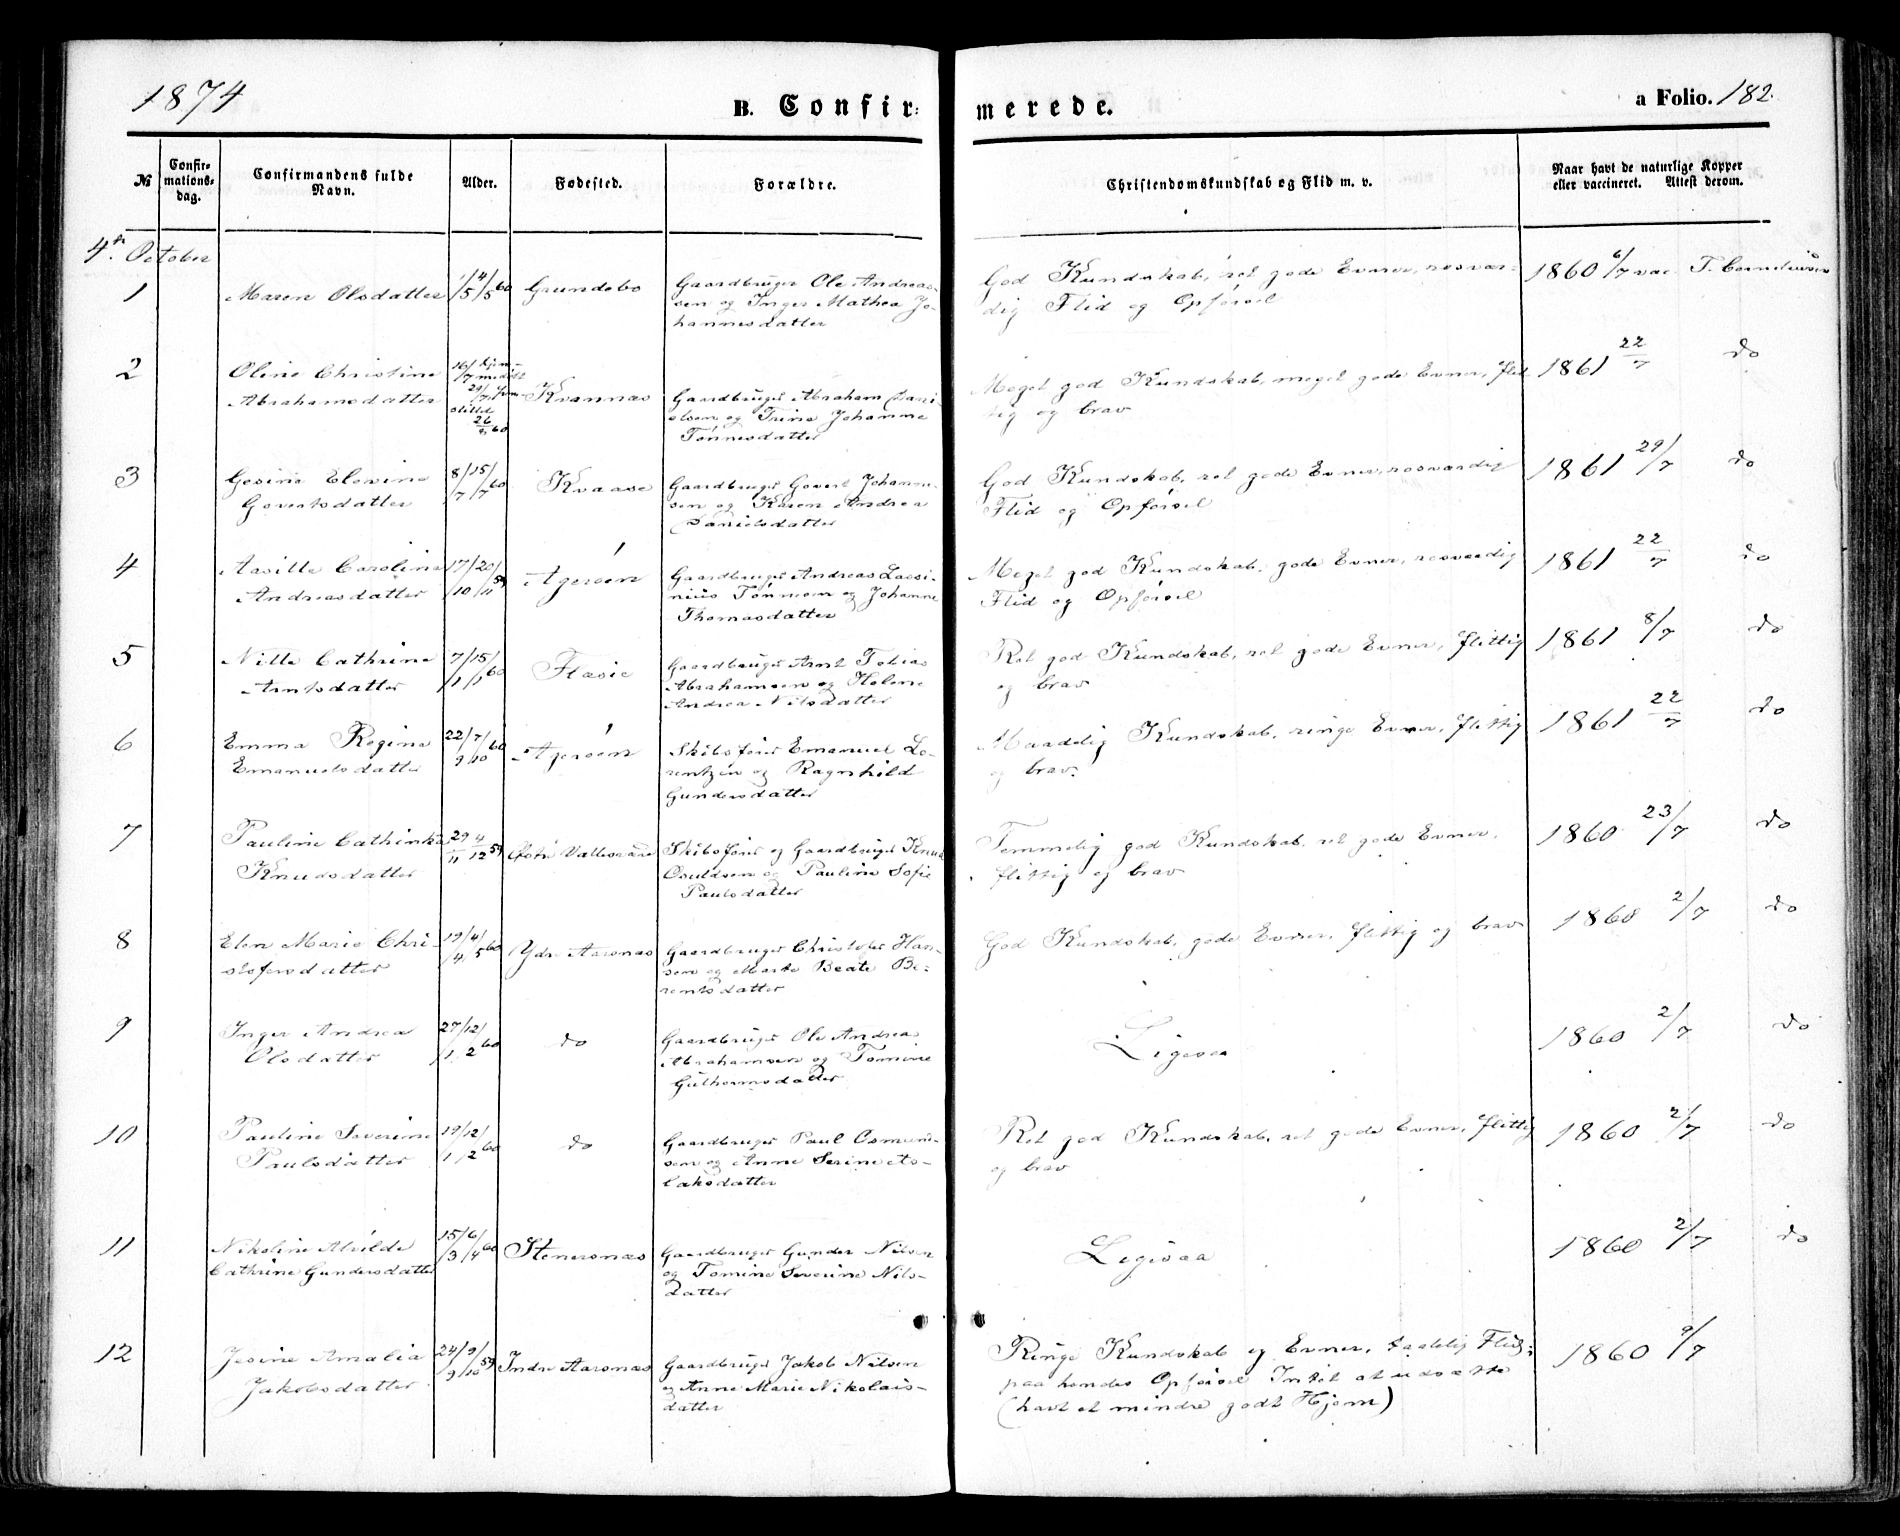 1874
B. Confir: merede.
a Folio. 182.
№
Confir=
mations=
dag.
Confirmandens fulde
Navn.
Alder.
Fødested.
Forældre.
Christendomskundskab og Flid m. v.
Naar havt de naturlige Kopper
eller vaccineret. Attest derom.
4de October
1
Maren Olsdatter
1/5 4/5 60
Grundebo
Gaardbruger Ole Andreas-
sen og Inger Mathea Jo-
hannesdatter
God Kundskab, ret gode Evner, rosvær-
dig Flid og Opførsel
1860 6/7 vac
T. Corneliusen
2
Oline Christine
Abrahamsdatter
16/7 hjem-
medøbt
Kvannas
Gaardbruger Abraham Dani-
elsen og Trine Johanne
Tønnesdatter
Meget god Kundskab, meget gode Evner, flit-
tig og brav
1861 22/7
do
3
Gesine Elevine
Govertsdatter
8/7 15/7 60
Kvaase
Gaardbruger Govert Johann-
sen og Karen Andrea
Danielsdatter
God Kundskab, ret gode Evner, rosværdig
Flid og Opførsel
1861 29/7
do
4
Aasille Caroline
Andreasdatter
17/10 20/11 59
Agerøen
Gaardbruger Andreas Lassi-
nius Tønnesen og Johanne
Thomasdatter
Meget god Kundskab, gode Evner, rosværdig
Flid og Opførsel
1861 22/7
do
5
Nille Cathrine
Arntsdatter
7/1 15/1 60
Flæsie
Gaardbruger Arnt Tobias
Abrahamsen og Helene
Andrea Nilsdatter
Ret god Kundskab, ret gode Evner, flittig
og brav
1861 8/7
do
6
Emma Regine
Emanuelsdatter
22/9 7/10 60
Agerøen
Skibsfører Emanuel Lo-
rentzen og Ragnhild
Gundersdatter
Maadelig Kundskab, ringe Evner, flittig
og brav.
1861 22/7
do
7
Pauline Cathinka
Knudsdatter
29/11 4/12 59
Vallesværd
Skibsfører og Gaardbruger Knud
Osuldsen og Pauline Sofie
Paulsdatter
Temmelig god Kundskab, ret gode Evner,
flittig og brav
1860 23/7
do
8
Elen Marie Chri-
stofersdatter
19/4 4/5 60
Ydre Aarsnas
Gaardbruger Christofer Han-
sen og Marte Beate Be-
rentsdatter
God Kundskab, gode Evner, flittig og brav
1860 2/7
do
9
Inger Andrea
Olsdatter
27/1 12/2 60
do
Gaardbruger Ole Andreas
Abrahamsen og Tomine
Guthormsdatter
Ligesaa
1860 2/7
do
10
Pauline Severine
Paulsdatter
19/1 12/2 60
do
Gaardbruger Paul Osmund-
sen og Anne Serine As-
laksdatter
Ret god Kundskab, ret gode Evner, flittig
og brav
1860 2/7
do
11
Nikoline Alvilde
Cathrine Gundersdatter
15/3 6/4 60
Stenersnas
Gaardbruger Gunder Nilsen
og Tomine Severine Nils-
datter
Ligesaa
1860 2/7
do
12
Jesine Amalia
Jakobsdatter
24/9 9/10 59
Indre Aarsnas
Gaardbruger Jakob Nilsen
og Anne Marie Nikolais-
datter
Ringe Kundskab og Evner, taalelig Flid;
paa hendes Opførsel Intet at udsætte
(havt et mindre godt Hjem)
1860 9/7